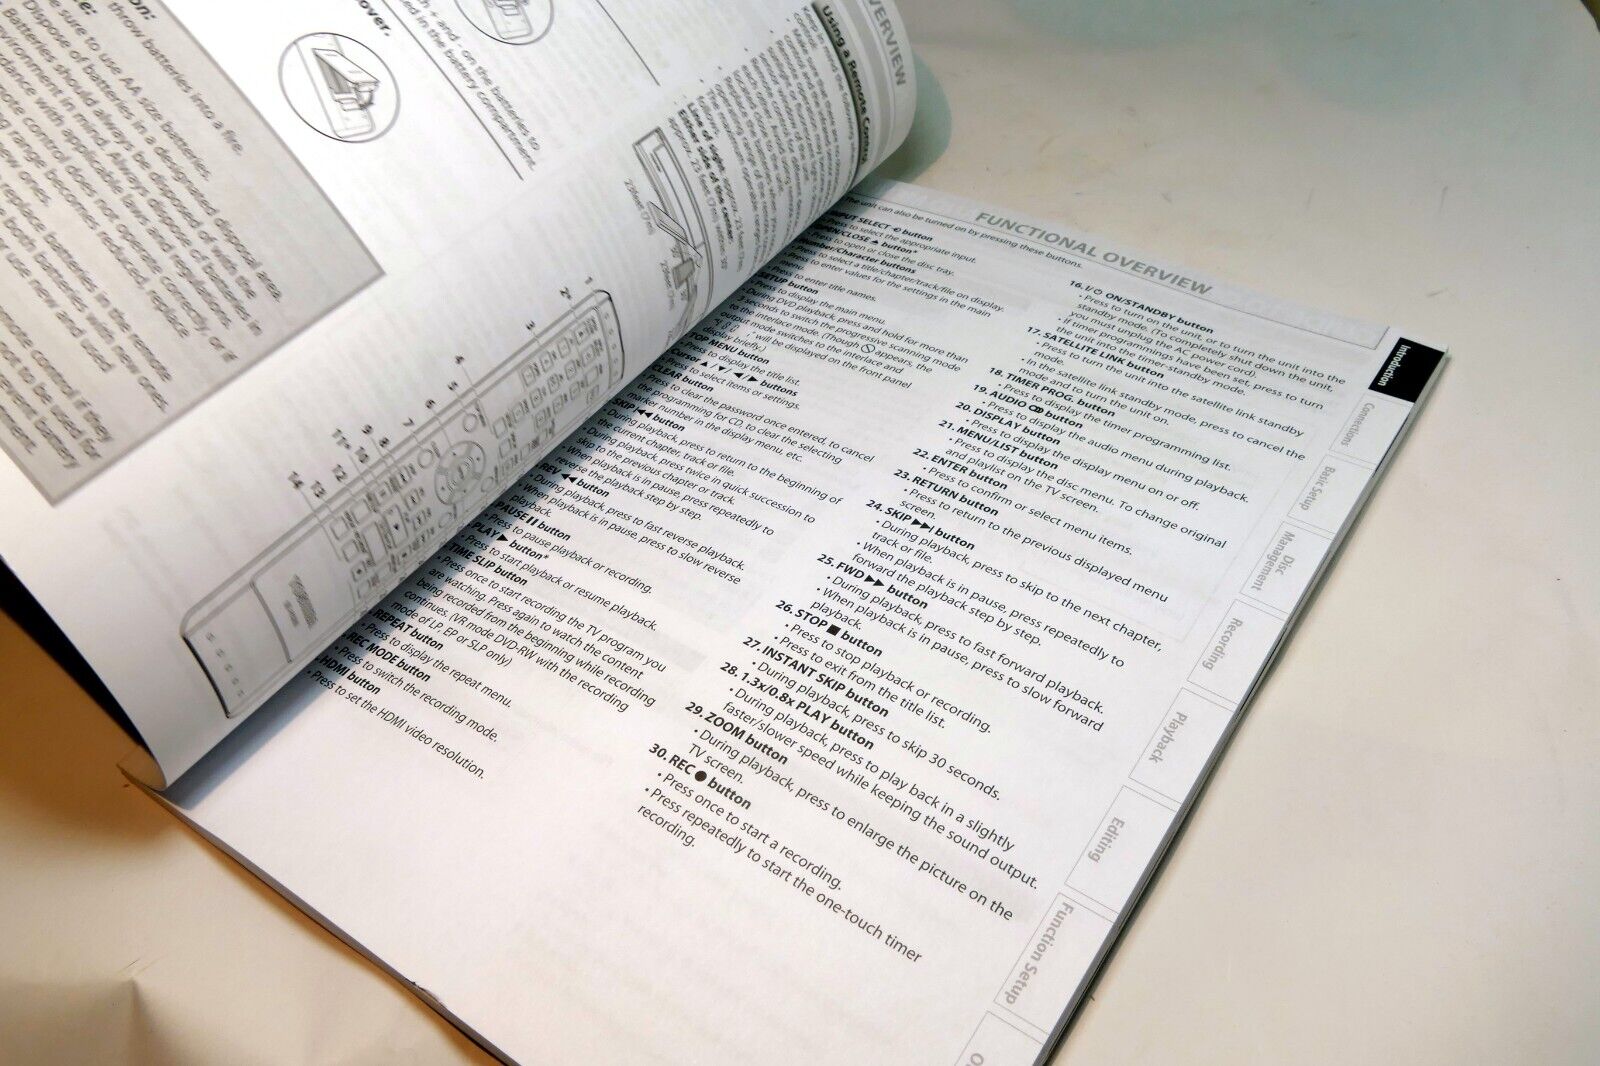 on:
ce:
throw batteries into a fire.
sure to use AA size batteries.
Dispose of batteries in a designated disposal area.
Batteries should always be disposed of with the
environment in mind. Always dispose of batteries in
dance with applicable laws and regulations.
ote control does not operate correctly, or if
range becomes reduced, replace
ew ones.
replace batteries in the remote
both batteries with new ones.
use new and used
over.
+ and - on the batteries to
ed in the battery compartment.
VERVIEW
Using a Remote Control
Keep in mind the following
Line of sight:
Either side of the center:
23feet (7m)
1
2*
3
4
5
6
7
8
9
10
11*
12
13
14
FUNCTIONAL OVERVIEW
he unit can also be turned on by pressing these buttons.
INPUT SELECT button
Press to select the appropriate input.
OPEN/CLOSE ▲ button*
Press to open or close the disc tray.
Number/Character buttons
• Press to select a title/chapter/track/file on display.
• Press to enter values for the settings in the main
menu.
• Press to enter title names.
SETUP button
• Press to display the main menu.
• During DVD playback, press and hold for more than
3 seconds to switch the progressive scanning mode
to the interlace mode. (Though appears, the
output mode switches to the interlace and
will be displayed on the front panel
display briefly.)
TOP MENU button
• Press to display the title list.
Cursor ▲ / ▼ / ◀ / ▶ buttons
• Press to select items or settings.
CLEAR button
• Press to clear the password once entered, to cancel
the programming for CD, to clear the selecting
marker number in the display menu, etc.
SKIP |◀◀ button
• During playback, press to return to the beginning of
the current chapter, track or file.
• During playback, press twice in quick succession to
skip to the previous chapter or track.
• When playback is in pause, press repeatedly to
reverse the playback step by step.
REV ◀◀ button
• During playback, press to fast reverse playback.
• When playback is in pause, press to slow reverse
playback.
PAUSE II button
• Press to pause playback or recording.
PLAY ▶ button*
• Press to start playback or resume playback.
TIME SLIP button
• Press once to start recording the TV program you
are watching. Press again to watch the content
being recorded from the beginning while recording
continues. (VR mode DVD-RW with the recording
mode of LP, EP or SLP only)
REPEAT button
• Press to display the repeat menu.
REC MODE button
• Press to switch the recording mode.
HDMI button
• Press to set the HDMI video resolution.
16. I/⏻ ON/STANDBY button
• Press to turn on the unit, or to turn the unit into the
standby mode. (To completely shut down the unit,
you must unplug the AC power cord).
• If timer programmings have been set, press to turn
the unit into the timer-standby mode.
17. SATELLITE LINK button
• Press to turn the unit into the satellite link standby
mode.
• In the satellite link standby mode, press to cancel the
mode and to turn the unit on.
18. TIMER PROG. button
• Press to display the timer programming list.
19. AUDIO button
• Press to display the audio menu during playback.
20. DISPLAY button
• Press to display the display menu on or off.
21. MENU/LIST button
• Press to display the disc menu. To change original
and playlist on the TV screen.
22. ENTER button
• Press to confirm or select menu items.
23. RETURN button
• Press to return to the previous displayed menu
screen.
24. SKIP ▶▶| button
• During playback, press to skip to the next chapter,
track or file.
• When playback is in pause, press repeatedly to
forward the playback step by step.
25. FWD ▶▶ button
• During playback, press to fast forward playback.
• When playback is in pause, press to slow forward
playback.
26. STOP ■ button
• Press to stop playback or recording.
• Press to exit from the title list.
27. INSTANT SKIP button
• During playback, press to skip 30 seconds.
28. 1.3x/0.8x PLAY button
• During playback, press to play back in a slightly
faster/slower speed while keeping the sound output.
29. ZOOM button
• During playback, press to enlarge the picture on the
TV screen.
30. REC ● button
• Press once to start a recording.
• Press repeatedly to start the one-touch timer
recording.
Introduction
Connections
Basic Setup
Disc
Management
Recording
Playback
Editing
Function Setup